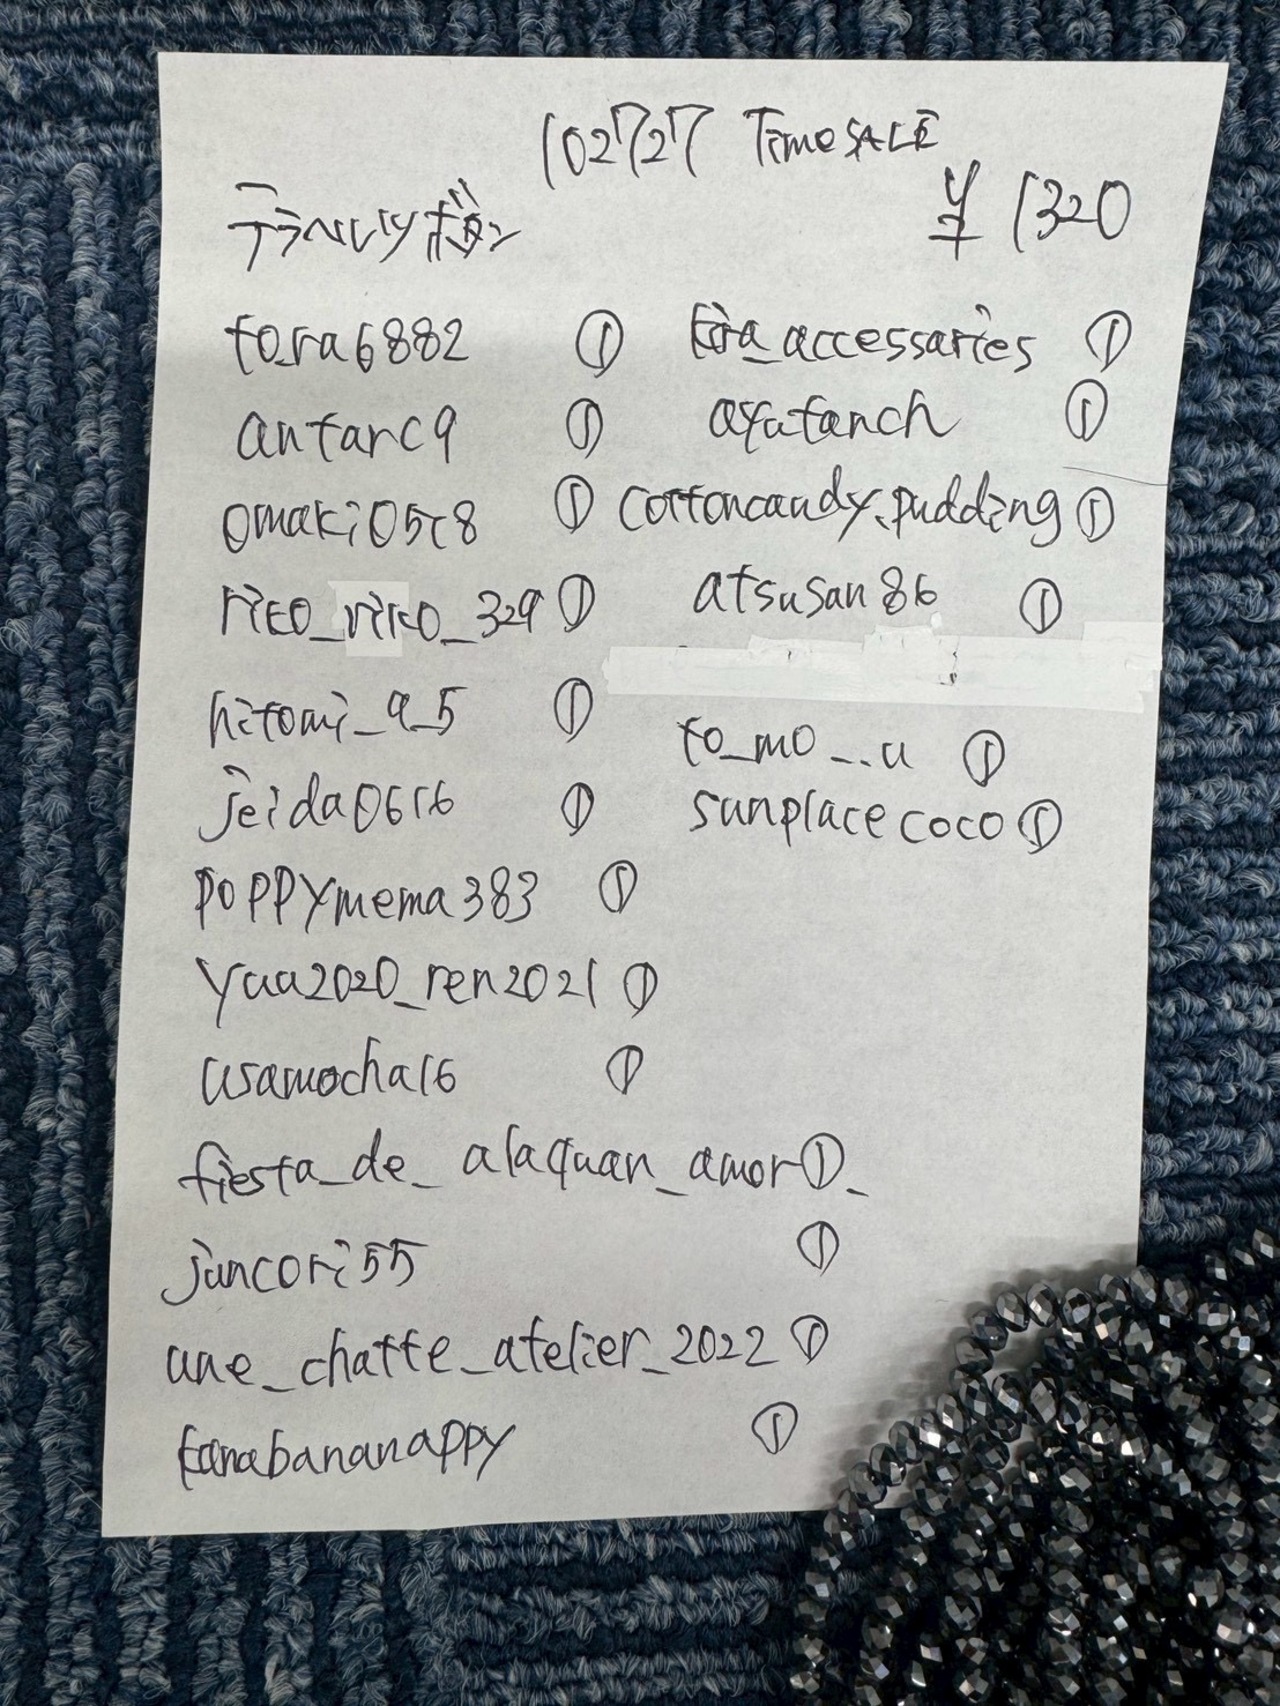 102727 Time SALE
テラヘルツボタン ¥1320
tora6882 ①
antarc9 ①
omaki0518 ①
rico_riko_329 ①
hitomi_9_5 ①
jeida0616 ①
poppymema383 ①
yaa2020_ren2021 ①
usamocha16 ①
fiesta_de_alaquan_amor_ ①
juncori55 ①
une_chatte_atelier_2022 ①
kanabananappy ①
kira_accessaries ①
ayatanch ①
cottoncandy.pudding ①
atsusan86 ①
to_mo_..u ①
sunplacecoco ①